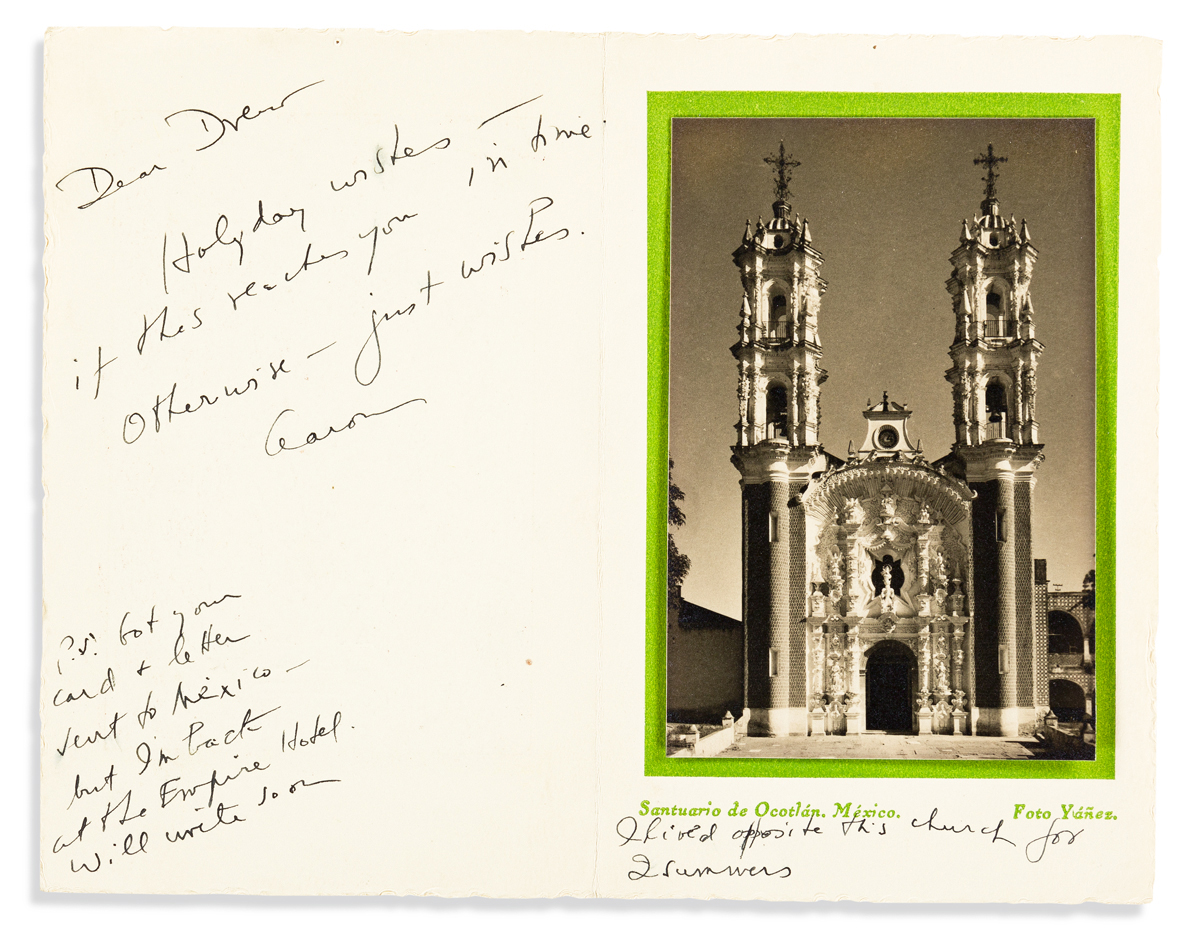 Dear Drew
Holyday wishes —
if this reaches you in time
Otherwise — just wishes.
Aaron
P.S. Got your
card & letter
sent to México —
but I'm back
at the Empire Hotel.
Will write soon
Santuario de Ocotlán. México. Foto Yáñez.
I lived opposite this church for
2 summers